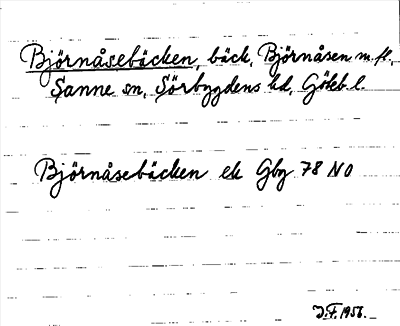 Björnåsebäcken, bäck, Björnåsen m. fl.,
Sanne sn, Sörbygdens hd, Göteb. l.
Björnåsebäcken ek Gbg 78 NO
J.F. 1956.